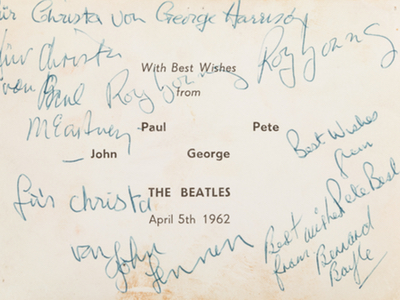 für Christa von George Harrison
für Christa
von Paul
McCartney
Roy Young
Roy Young
With Best Wishes
from
Paul Pete
John George
THE BEATLES
April 5th 1962
Best Wishes
from
Pete Best
für Christa
von John
Lennon
Best wishes
from Bernard
Boyle